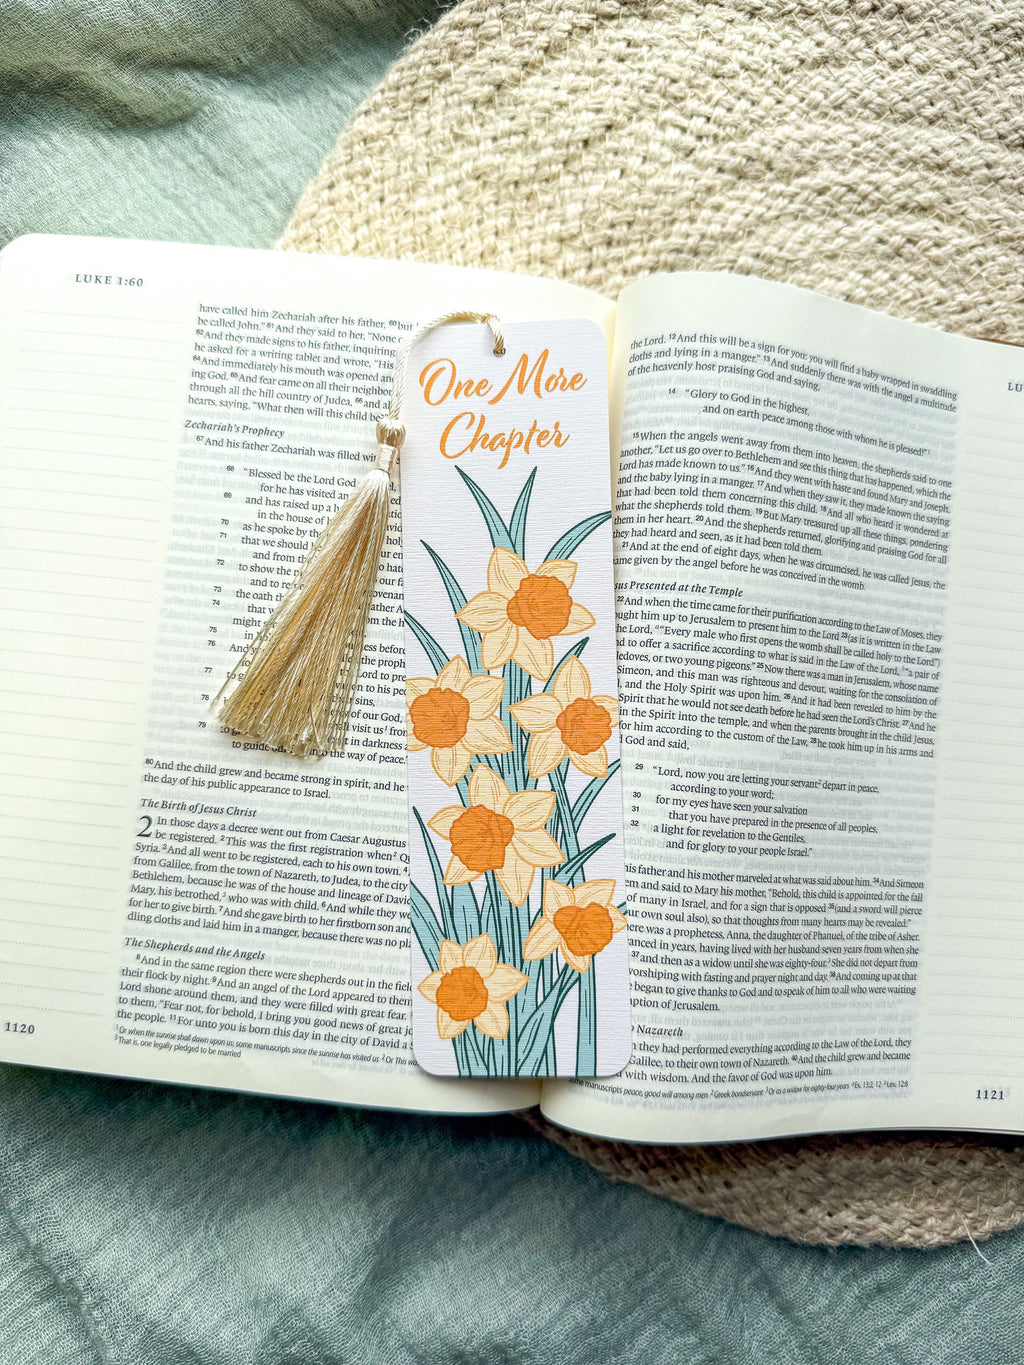 LUKE 1:60
have called him Zechariah after his father, 60but
be called John." 61And they said to her, "None
62And they made signs to his father, inquiring
he asked for a writing tablet and wrote, "His
64And immediately his mouth was opened and
ing God. 65And fear came on all their neighbor
through all the hill country of Judea, 66and al
hearts, saying, "What then will this child be
Zechariah's Prophecy
67And his father Zechariah was filled with
68 "Blessed be the Lord God
for he has visited an
69 and has raised up a h
in the house of
70 as he spoke by th
71 that we should
and from th
72 to show the
and to re
73 the oath th
74 that w
might
75 in
76 And y
77 to g
78
79
to guide our into the way of peace."
80And the child grew and became strong in spirit, and he
the day of his public appearance to Israel.
The Birth of Jesus Christ
2 In those days a decree went out from Caesar Augustus
be registered. 2This was the first registration when2 Q
Syria. 3And all went to be registered, each to his own town. 4
from Galilee, from the town of Nazareth, to Judea, to the city
Bethlehem, because he was of the house and lineage of David
Mary, his betrothed,3 who was with child. 6And while they we
for her to give birth. 7And she gave birth to her firstborn son and
dling cloths and laid him in a manger, because there was no pl
The Shepherds and the Angels
8And in the same region there were shepherds out in the fiel
their flock by night. 9And an angel of the Lord appeared to them
Lord shone around them, and they were filled with great fear.
to them, "Fear not, for behold, I bring you good news of great jo
the people. 11For unto you is born this day in the city of David a S
1 Or when the sunrise shall dawn upon us; some manuscripts since the sunrise has visited us 2 Or This wa
3 That is, one legally pledged to be married
1120
One More
Chapter
LU
the Lord. 12And this will be a sign for you: you will find a baby wrapped in swaddling
cloths and lying in a manger." 13And suddenly there was with the angel a multitude
of the heavenly host praising God and saying,
14 "Glory to God in the highest,
and on earth peace among those with whom he is pleased!"1
15When the angels went away from them into heaven, the shepherds said to one
another, "Let us go over to Bethlehem and see this thing that has happened, which the
Lord has made known to us." 16And they went with haste and found Mary and Joseph,
and the baby lying in a manger. 17And when they saw it, they made known the saying
that had been told them concerning this child. 18And all who heard it wondered at
what the shepherds told them. 19But Mary treasured up all these things, pondering
them in her heart. 20And the shepherds returned, glorifying and praising God for all
they had heard and seen, as it had been told them.
21And at the end of eight days, when he was circumcised, he was called Jesus, the
ame given by the angel before he was conceived in the womb.
sus Presented at the Temple
22And when the time came for their purification according to the Law of Moses, they
ought him up to Jerusalem to present him to the Lord 23(as it is written in the Law
the Lord, "Every male who first opens the womb shall be called holy to the Lord")
nd to offer a sacrifice according to what is said in the Law of the Lord, "a pair of
ledoves, or two young pigeons." 25Now there was a man in Jerusalem, whose name
Simeon, and this man was righteous and devout, waiting for the consolation of
, and the Holy Spirit was upon him. 26And it had been revealed to him by the
Spirit that he would not see death before he had seen the Lord's Christ. 27And he
in the Spirit into the temple, and when the parents brought in the child Jesus,
for him according to the custom of the Law, 28he took him up in his arms and
God and said,
29 "Lord, now you are letting your servant2 depart in peace,
according to your word;
30 for my eyes have seen your salvation
31 that you have prepared in the presence of all peoples,
32 a light for revelation to the Gentiles,
and for glory to your people Israel."
his father and his mother marveled at what was said about him. 34And Simeon
em and said to Mary his mother, "Behold, this child is appointed for the fall
of many in Israel, and for a sign that is opposed 35(and a sword will pierce
ur own soul also), so that thoughts from many hearts may be revealed."
re was a prophetess, Anna, the daughter of Phanuel, of the tribe of Asher.
anced in years, having lived with her husband seven years from when she
37and then as a widow until she was eighty-four.3 She did not depart from
orshiping with fasting and prayer night and day. 38And coming up at that
e began to give thanks to God and to speak of him to all who were waiting
ption of Jerusalem.
o Nazareth
n they had performed everything according to the Law of the Lord, they
Galilee, to their own town of Nazareth. 40And the child grew and became
d with wisdom. And the favor of God was upon him.
some manuscripts peace, good will among men 2 Greek bondservant 3 Or as a widow for eighty-four years
1121